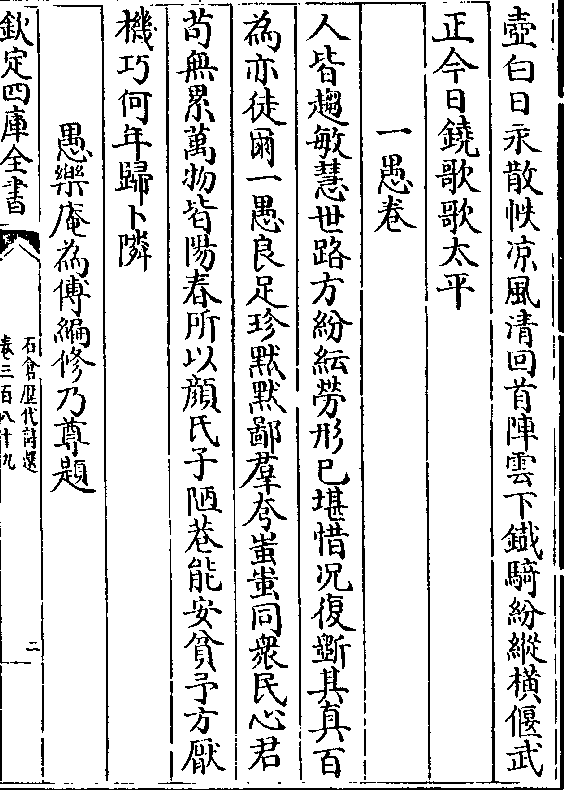 壺白日永散帙凉風清回首陣雲下鐵騎紛縱横偃武
正今日鐃歌歌太平
一愚卷
人皆趨敏慧世路方紛紜勞形已堪惜况復斵其真百
為亦徒爾一愚良足珍黙黙鄙羣夸蚩蚩同衆民心君
苟無累萬物皆陽春所以顔氏子陋巷能安貧予方厭
機巧何年歸卜隣
愚樂庵為傅編修乃尊題
欽定四庫全書
石倉歴代詩選
卷三百八十九
二